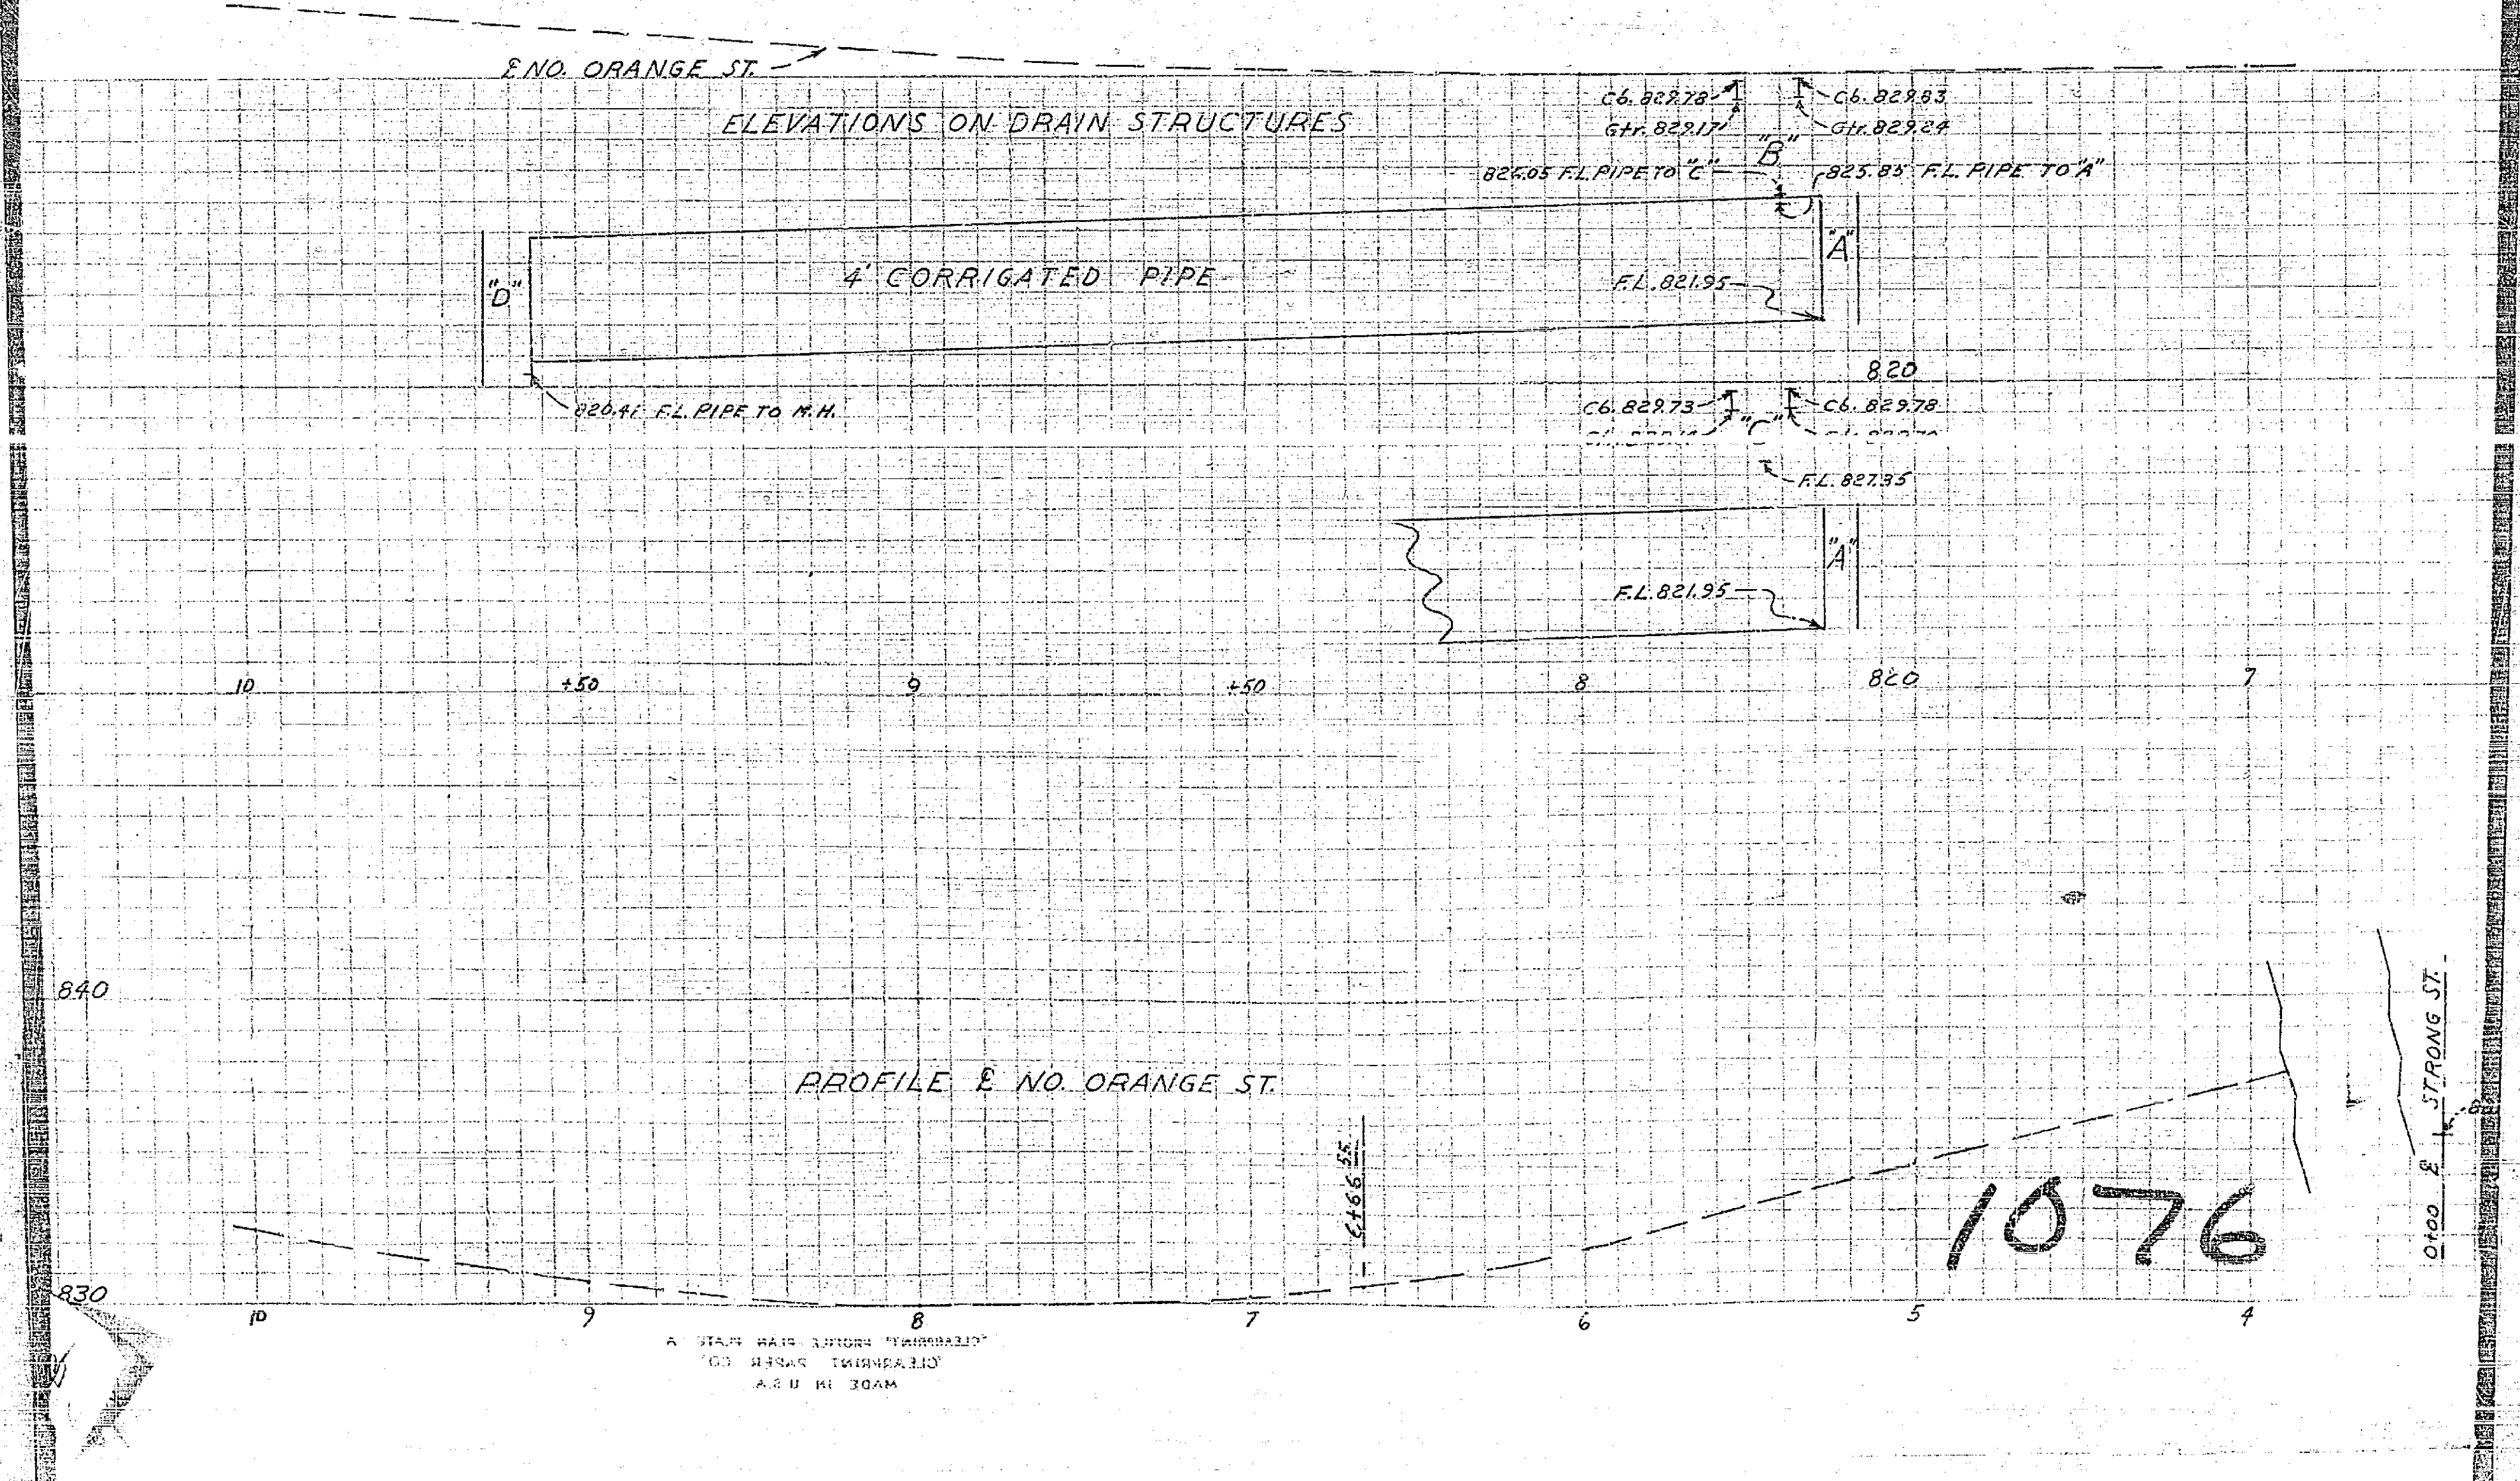 ℄ NO. ORANGE ST.
ELEVATIONS ON DRAIN STRUCTURES
Cb. 829.78
Cb. 829.83
Gtr. 829.17
Gtr. 829.24
"B"
826.05 F.L. PIPE TO "C"
825.85 F.L. PIPE TO "A"
"A"
"D"
4' CORRIGATED PIPE
F.L. 821.95
820
820.41 F.L. PIPE TO M.H.
Cb. 829.73
Cb. 829.78
"C"
F.L. 827.35
"A"
F.L. 821.95
10 +50 9 +50 8 820 7
840
PROFILE ℄ NO. ORANGE ST.
6+66 55
0+00 ℄ STRONG ST.
1076
830
10 9 8 7 6 5 4
"CLEARPRINT" PROFILE PLAN PLATE A
"CLEARPRINT PAPER CO"
MADE IN U.S.A.